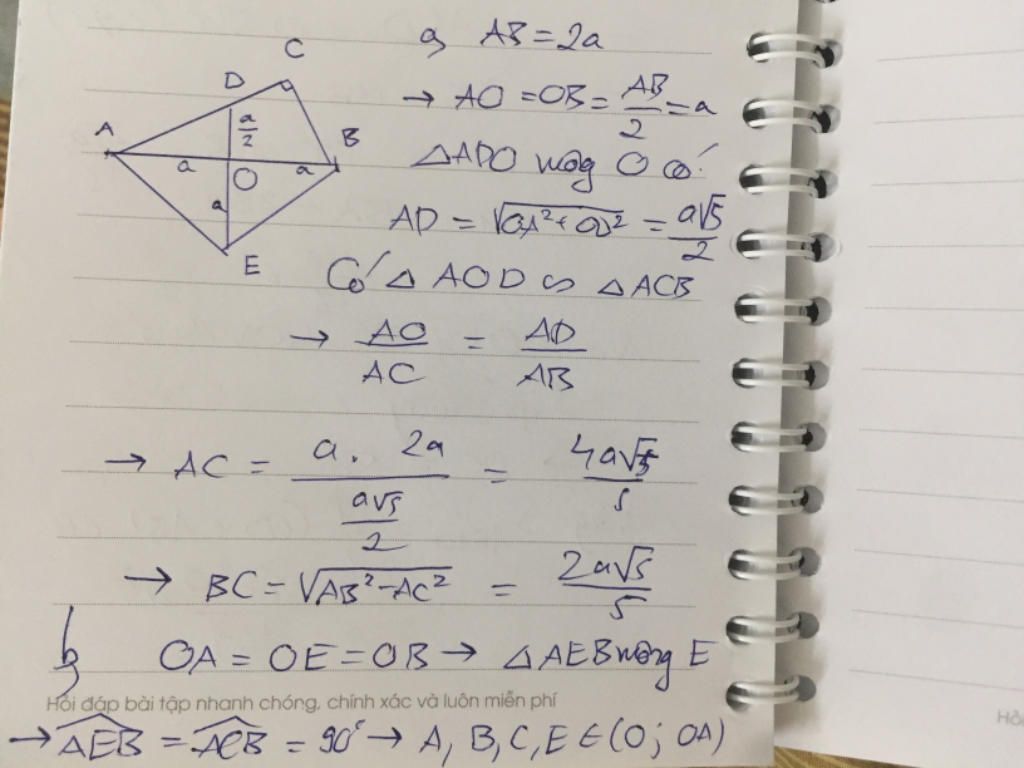 C
D
A
a/2
B
a
O
a
a
E
a, AB = 2a
→ AO = OB = AB/2 = a
△ADO vuông O có:
AD = √(OA² + OD²) = a√5/2
Có △AOD ∽ △ACB
→ AO/AC = AD/AB
→ AC = (a . 2a)/(a√5/2) = 4a√5/5
→ BC = √(AB² - AC²) = 2a√5/5
b, OA = OE = OB → △AEB vuông E
Hỏi đáp bài tập nhanh chóng, chính xác và luôn miễn phí
Hỏi
→ AEB = ACB = 90° → A, B, C, E ∈ (O; OA)